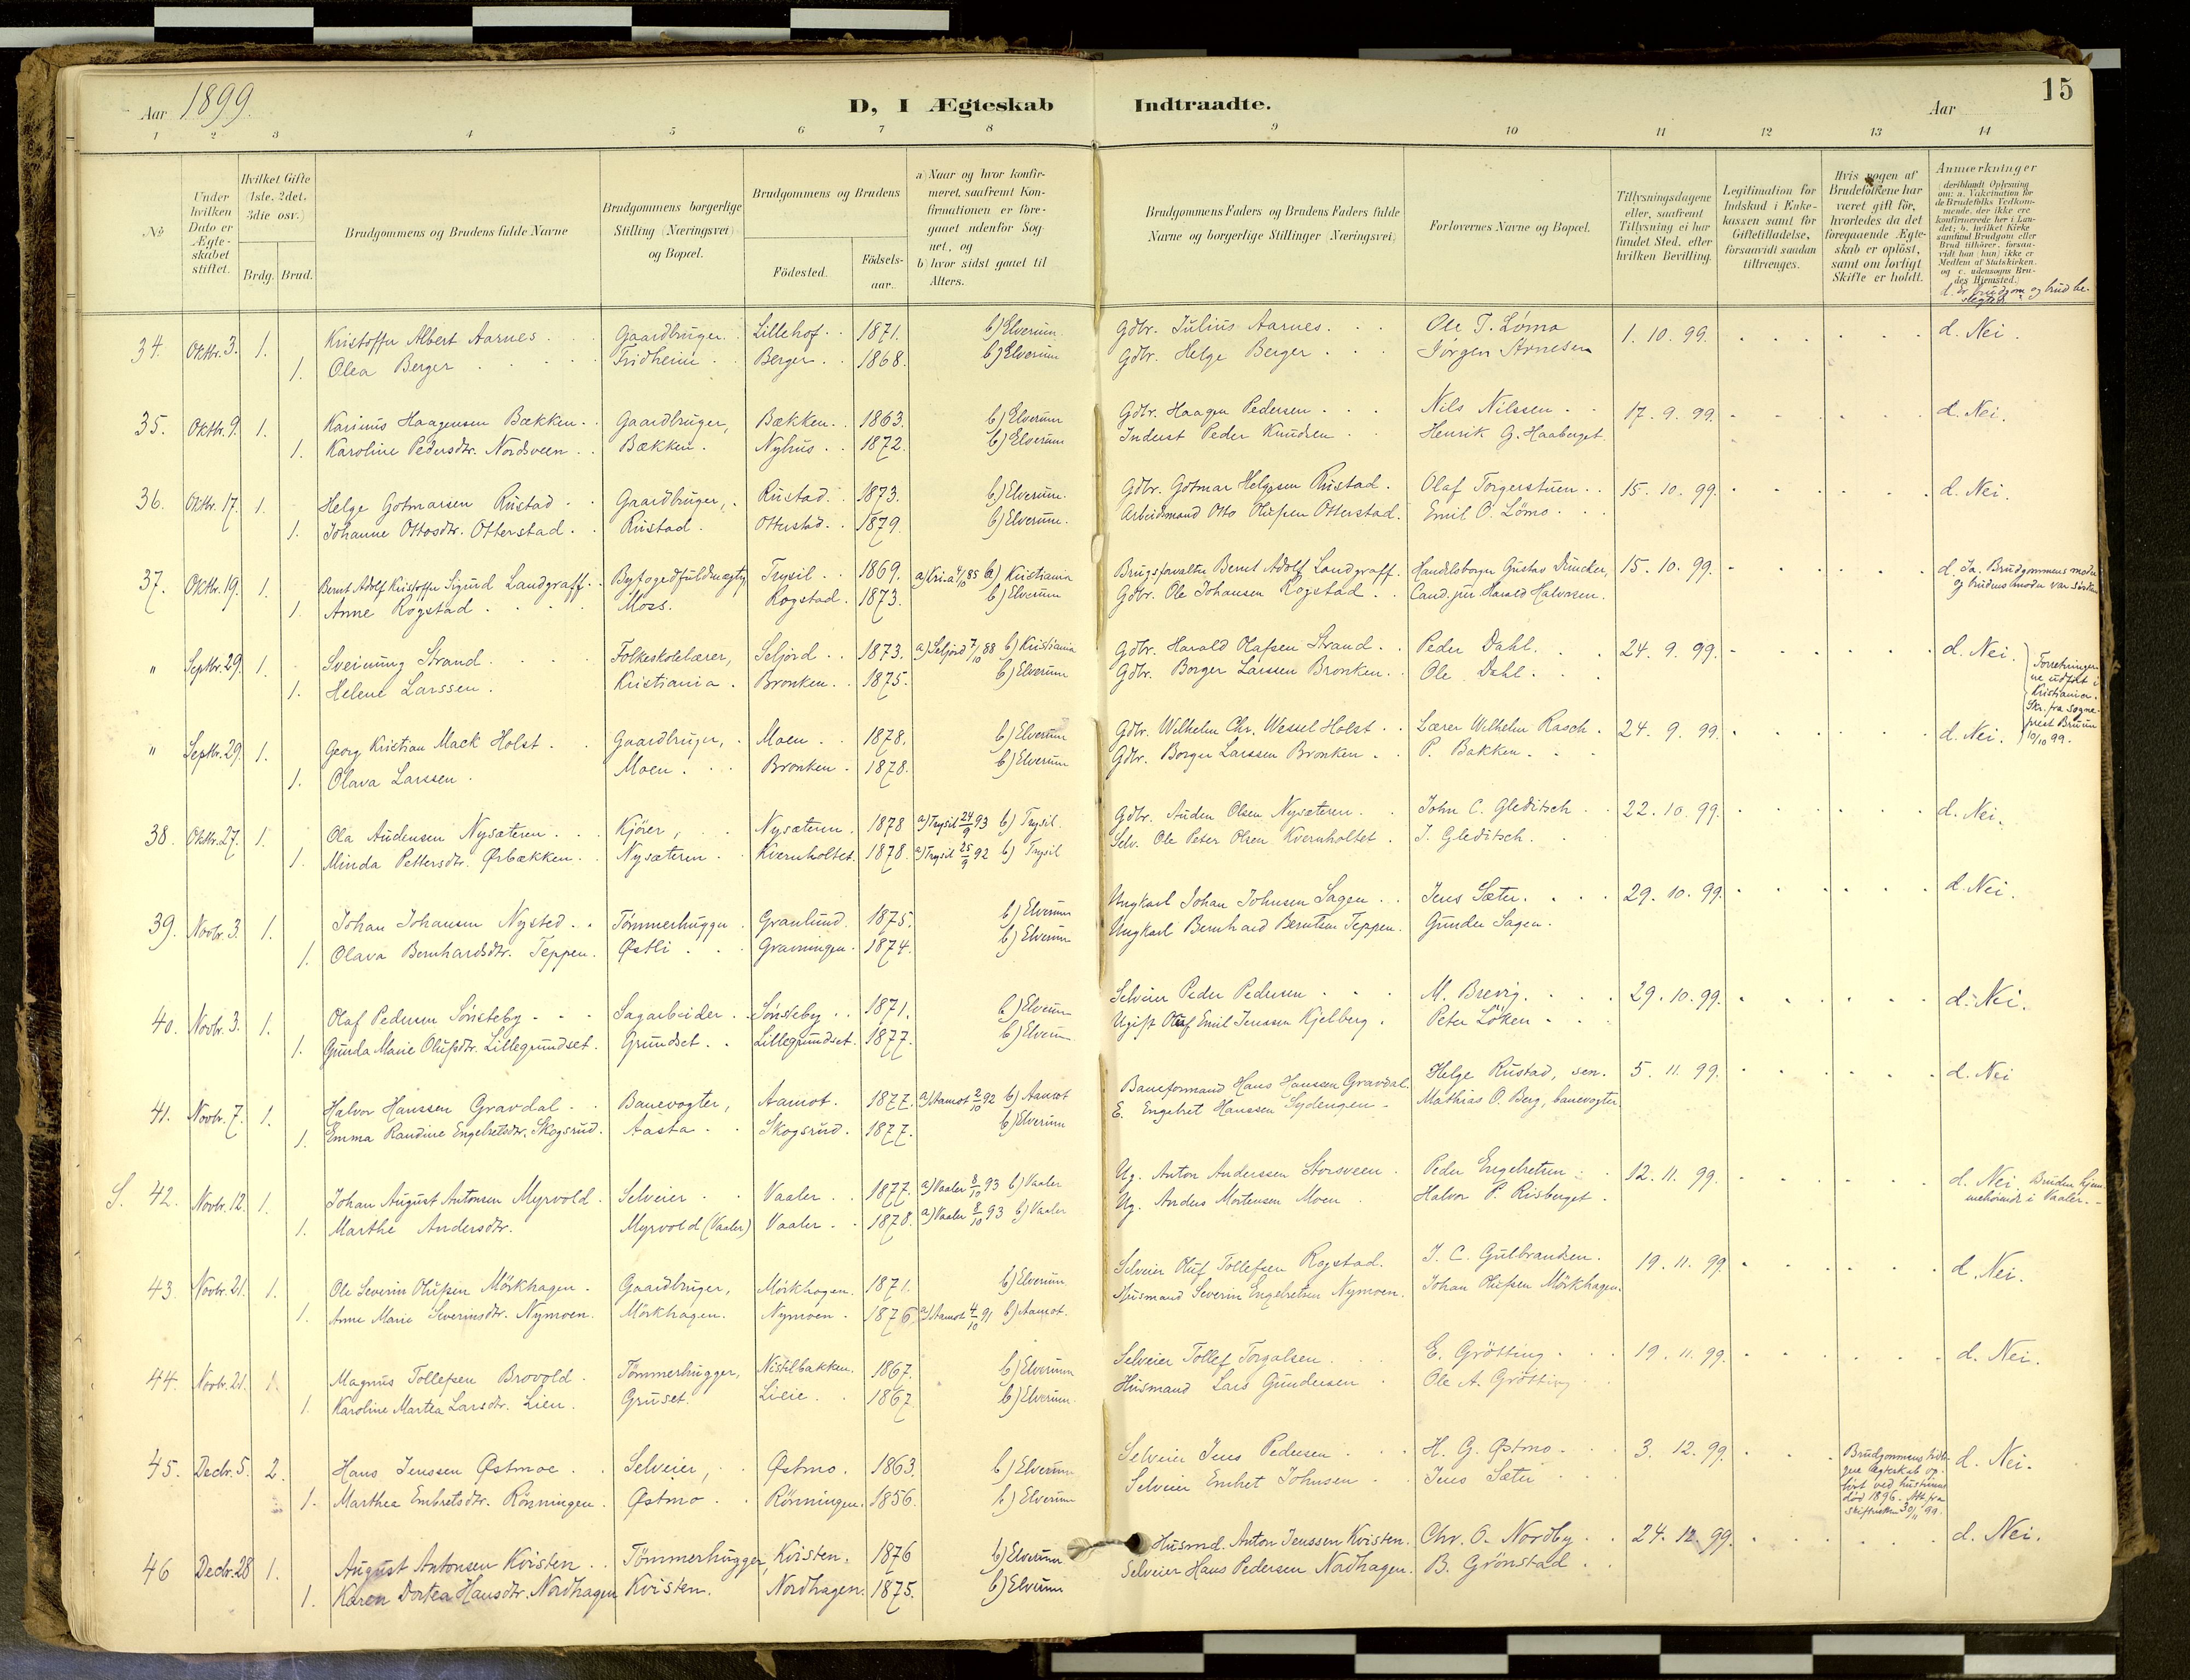 15
Aar 1899.
D, I Ægteskab Indtraadte.
Aar
1 2 3 4 5 6 7 8 9 10 11 12 13 14
No
Under hvilken Dato er Ægteskabet stiftet.
Hvilket Gifte (1ste, 2det, 3die osv.)
Brdg. Brud.
Brudgommens og Brudens fulde Navne
Brudgommens borgerlige Stilling (Næringsvei) og Bopæl.
Brudgommens og Brudens
Födested.
Födsels-aar.
a) Naar og hvor konfirmeret, saafremt Konfirmationen er foregaaet udenfor Sognet, og
b) hvor sidst gaaet til Alters.
Brudgommens Faders og Brudens Faders fulde Navne og borgerlige Stillinger (Næringsvei)
Forlovernes Navne og Bopæl.
Tillysningsdagene eller, saafremt Tillysning ei har fundet Sted, efter hvilken Bevilling.
Legitimation for Indskud i Enkekassen samt for Giftetilladelse, forsaavidt saadan tiltrænges.
Hvis nogen af Brudefolkene har været gift för, hvorledes da det foregaaende Ægteskab er oplöst, samt om lovligt Skifte er holdt.
Anmærkninger
(deriblandt Oplysning om: a. Vakcination for de Brudefolks Vedkommende, der ikke ere konfirmerede her i Landet; b. hvilket Kirkesamfund Brudgom eller Brud tilhörer, forsaavidt han (hun) ikke er Medlem af Statskirken, og c. udensogns Brudes Hjemsted.)
d. Er brudgom og brud beslegted.
34. Oktbr. 3. 1. Kristoffer Albert Aarnes. Gaardbruger. Lillehof. 1871. b) Elverum Gdbr. Julius Aarnes. Ole T. Lömo 1. 10. 99. d. Nei.
1. Olea Berger Fridheim Berger 1868. b) Elverum Gdbr. Helge Berger Jörgen Arnesen
35. Oktbr. 9. 1. Karinus Haagensen Bækken. Gaardbruger, Bækken. 1863. b) Elverum Gdbr. Haagen Pedersen Nils Nilssen 17. 9. 99. d. Nei.
1. Karoline Pedersdtr. Nordsveen Bækken. Nyhus 1872. b) Elverum Inderst Peder Knudsen Henrik G. Haaberget.
36. Oktbr. 17. 1. Helge Gotmarsen Rustad Gaardbruger, Rustad. 1873. b) Elverum. Gdbr. Gotmar Helgesen Rustad. Olaf Torgerstuen 15. 10. 99. d. Nei.
1. Johanne Ottosdtr. Otterstad. Rustad. Otterstad. 1879. b) Elverum. Arbeidsmand Otto Olufsen Otterstad. Emil O. Lömo.
37. Oktbr. 19. 1. Bernt Adolf Kristoffer Sigurd Landgraff. Byfogedfuldmægtig Trysil 1869. a) Kri.a 4/10 85 b) Kristiania Brugsforvalter Bernt Adolf Landgraff. Handelsborger Gustav Duncker, 15. 10. 99. d. Ja. Brudgommens moder
1. Anne Rogstad Moss. Rogstad. 1873. b) Elverum Gdbr. Ole Johansen Rogstad. Cand. jur Harald Halvorsen. og brudens moder var söstre
" Septbr. 29. 1. Sveinung Strand Folkeskolelærer, Seljord 1873. a) Seljord 7/10 88 b) Kristiania Gdbr. Harald Olafsen Strand. Peder Dahl. 24. 9. 99. d. Nei.
1. Helene Larssen. Kristiania. Bronken. 1875. b) Elverum Gdbr. Borger Larssen Bronken. Ole Dahl.
Forretningerne udført i Kristiania. Skr. fra sogneprest Bruun 10/10 99.
" Septbr. 29. 1. Georg Kristian Mack Holst. Gaardbruger, Moen 1878. b) Elverum Gdbr. Wilhelm Chr. Wessel Holst. Lærer Wilhelm Rasch. 24. 9. 99. d. Nei.
1. Olava Larssen. Moen. Bronken. 1878. b) Elverum Gdbr. Borger Larssen Bronken. P. Bakken.
38. Oktbr. 27. 1. Ola Audensen Nysæteren. Kjörer, Nysæteren. 1878 a) Trysil 24/9 93 b) Trysil. Gdbr. Auden Olsen Nysæteren. John C. Gleditsch 22. 10. 99. d. Nei.
1. Minda Pettersdtr. Ørbækken. Nysæteren. Kvernholtet. 1878. a) Trysil 25/9 92 b) Trysil Selv. Ole Peter Olsen Kvernholtet. J. Gleditsch.
39. Novbr. 3. 1. Johan Johansen Nysted. Tömmerhugger. Granlund. 1875. b) Elverum Ungkarl Johan Johnsen Sagen. Jens Sæter. 29. 10. 99. d. Nei.
1. Olava Bernhardsdtr. Teppen. Østli Gravningen. 1874. b) Elverum Ungkarl Bernhard Berntsen Teppen. Gunder Sagen.
40. Novbr. 3. 1. Olaf Pedersen Sönsteby Sagarbeider. Sönsteby. 1871. b) Elverum Selveier Peder Pedersen M. Brevig. 29. 10. 99. d. Nei.
1. Gunda Marie Olufsdtr. Lillegrundset. Grundset. Lillegrundset. 1877. b) Elverum Ugift Oluf Emil Jenssen Kjelberg. Peter Löken
41. Novbr. 7. 1. Halvor Hanssen Gravdal. Banevogter, Aamot. 1877. a) Aamot 2/10 92 b) Aamot Baneformand Hans Hanssen Gravdal. Helge Rustad, sen. 5. 11. 99. d. Nei
1. Emma Randine Engebretsdtr. Skogsrud. Aasta Skogsrud. 1877. b) Elverum E. Engebret Hanssen Sydengen. Mathias O. Berg, banevogter
S. 42. Novbr. 12. 1. Johan August Antonsen Myrvold. Selveier Vaaler 1877. a) Vaaler 8/10 93 b) Vaaler Ug. Anton Anderssen Storsveen. Peder Engebretsen 12. 11. 99. d. Nei. Bruden hjem-
1. Marthe Andersdtr. Myrvold (Vaaler) Vaaler 1878. a) Vaaler 8/10 93 b) Vaaler Ug. Anders Mortensen Moen. Halvor P. Risberget. mehörende i Vaaler.
43. Novbr. 21. 1. Ole Severin Olufsen Mörkhagen. Gaardbruger, Mörkhagen. 1871. b) Elverum. Selveier Oluf Tollefsen Rogstad. J. C. Gulbrandsen. 19. 11. 99. d. Nei.
1. Anne Marie Severinsdtr. Nymoen. Mörkhagen. Nymoen. 1876. a) Aamot 4/10 91 b) Aamot. Husmand Severin Engebretsen Nymoen. Johan Olufsen Mörkhagen.
44. Novbr. 21. 1. Magnus Tollefsen Brovold. Tömmerhugger, Nistilbakken. 1867. b) Elverum Selveier Tollef Torgalsen. E. Grötting. 19. 11. 99. d. Nei.
1. Karoline Martea Larsdtr. Lien. Gruset. Lieie. 1867. b) Elverum. Husmand Lars Gundersen Ole A. Grötting
45. Decbr. 5. 2. Hans Jenssen Østmoe. Selveier, Østmo. 1863. b) Elverum Selveier Jens Pedersen H. G. Østmo. 3. 12. 99. d. Nei.
1. Marthea Embretsdtr. Rönningen. Østmo Rönningen. 1856. b) Elverum Selveier Embret Johnsen Jens Sæter
Brudgommens tidligere ægteskab oplöst ved hustruens död 1896. Att. fra skifteretten 30/11 99.
46 Decbr. 28 1. August Antonsen Kvisten. Tömmerhugger, Kvisten. 1876 b) Elverum Husmd. Anton Jenssen Kvisten. Chr. O. Nordby. 24. 12. 99. d. Nei.
1. Karen Dortea Hansdtr. Nordhagen Kvisten. Nordhagen. 1875. b) Elverum Selveier Hans Pedersen Nordhagen. B. Grönstad